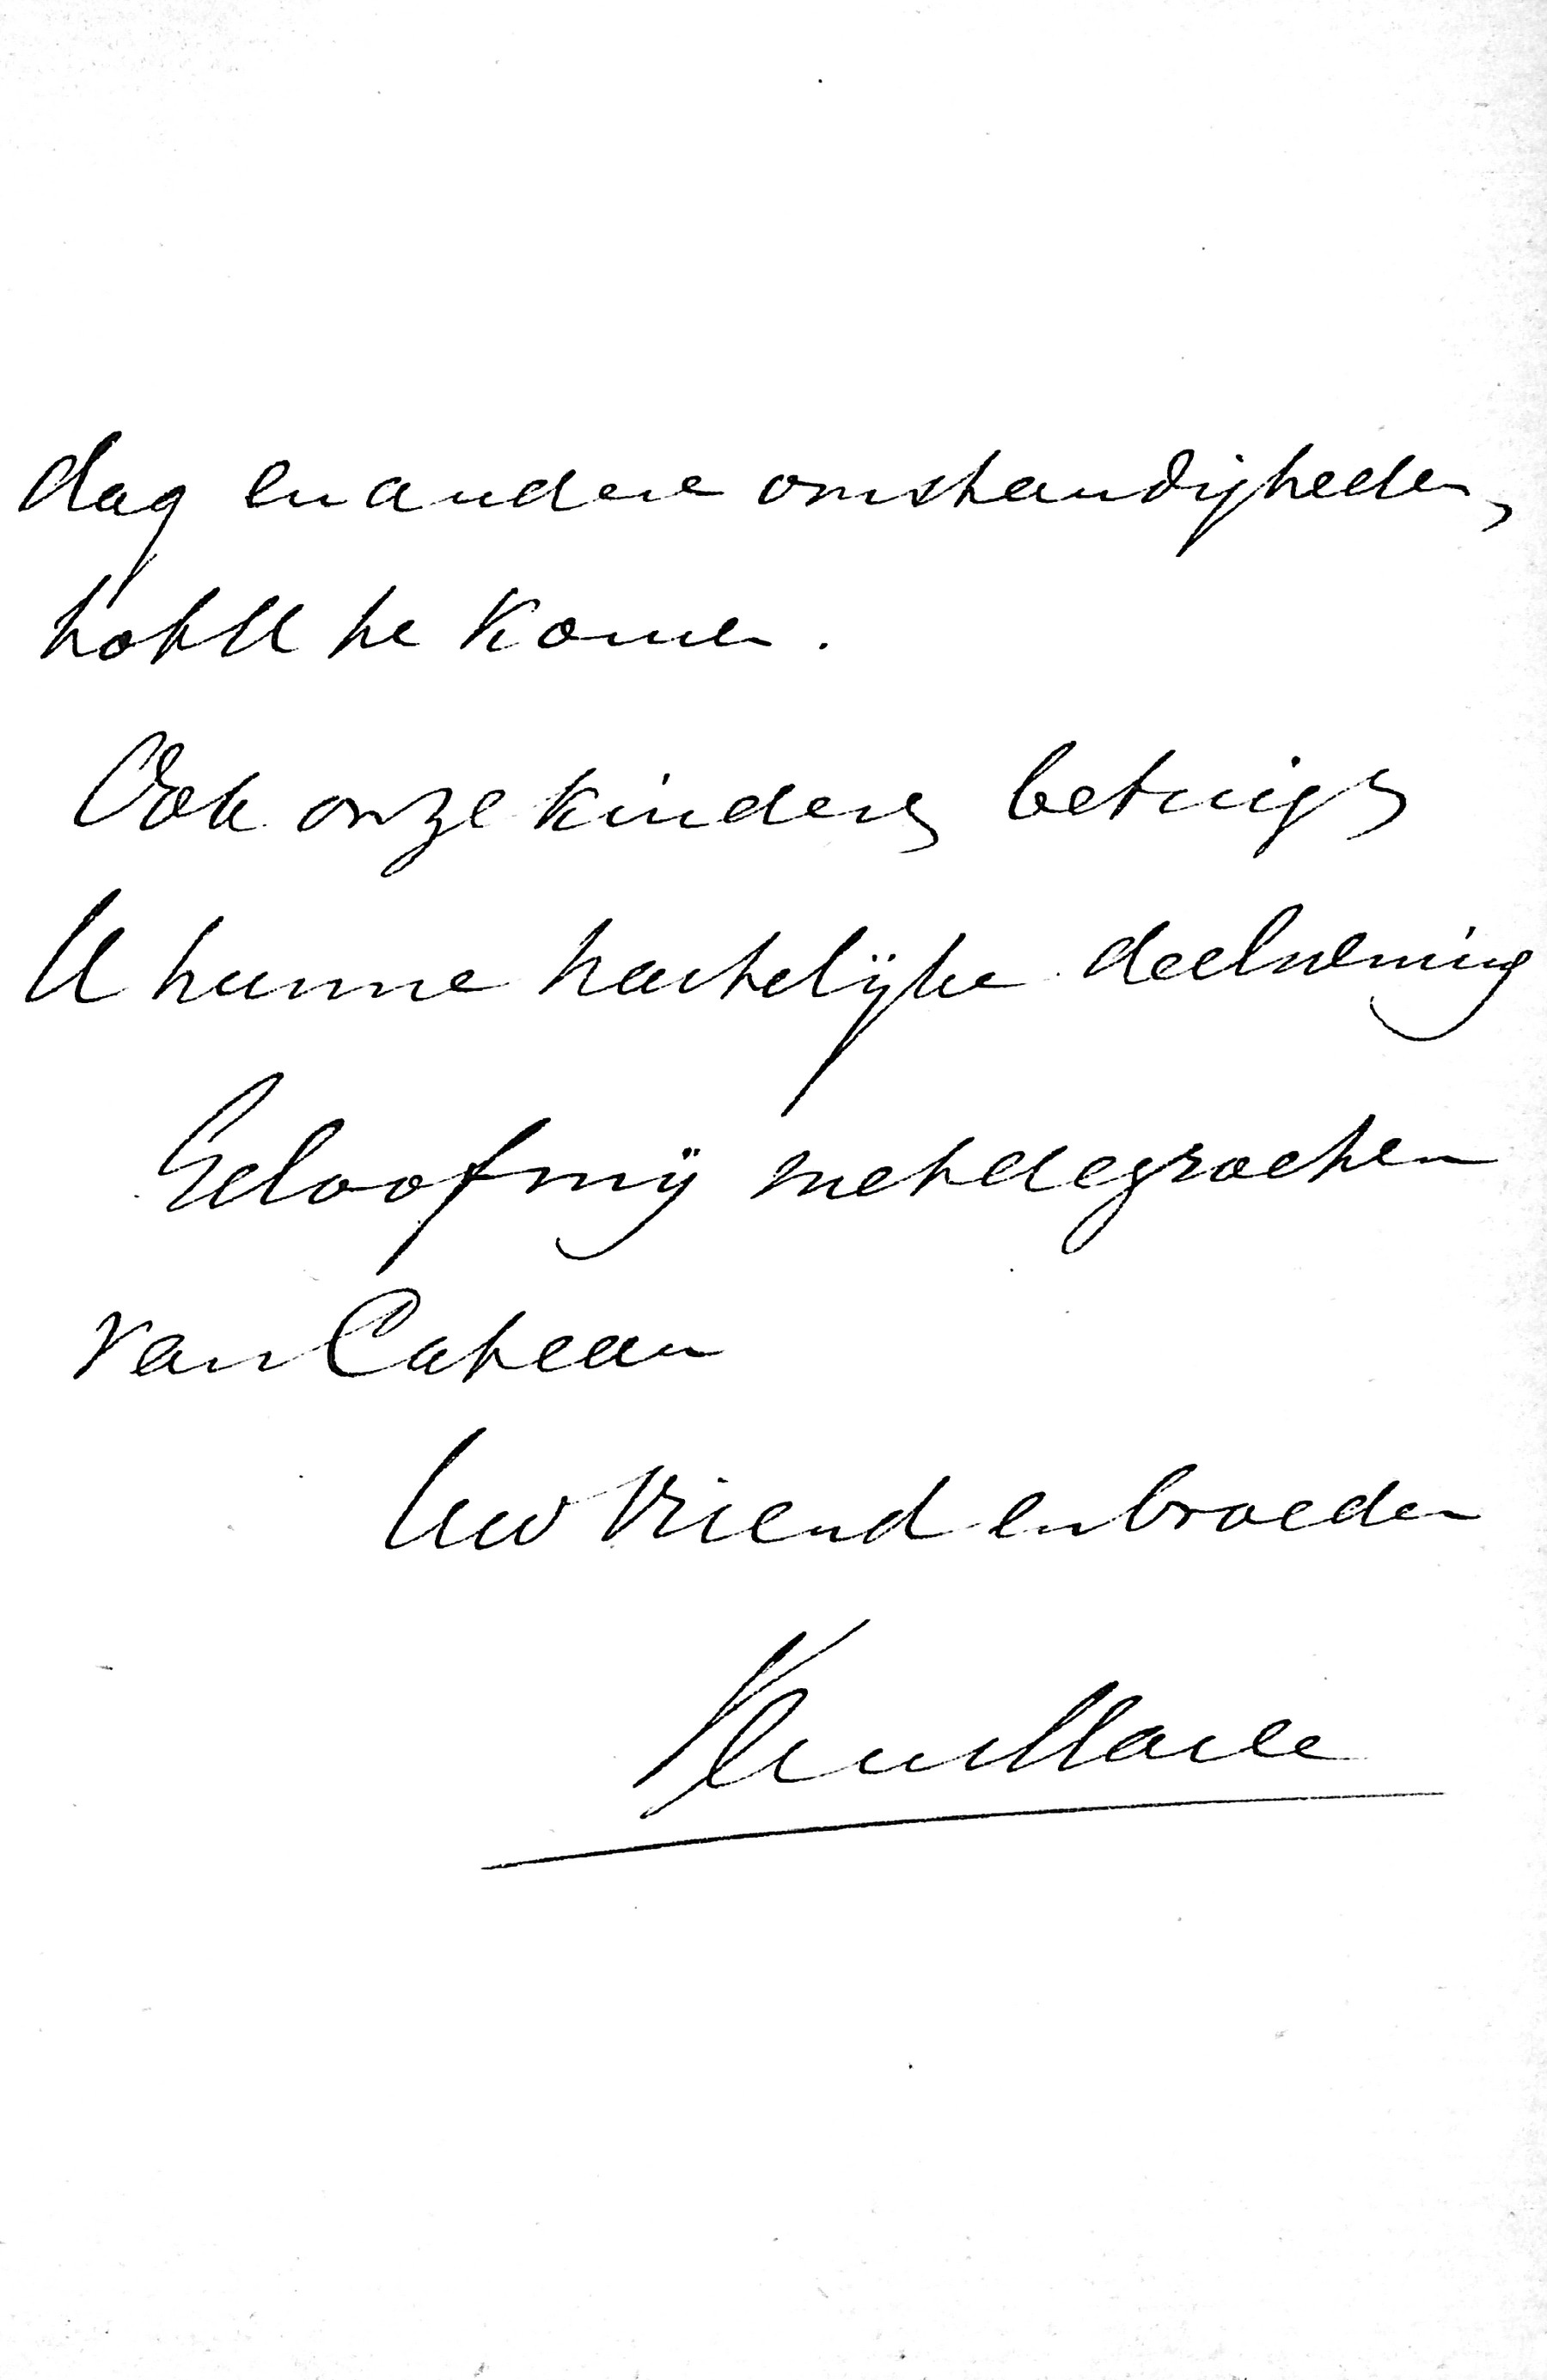 dag en andere omstandigheden,
tot U te komen.
Ook onze kinderen betuigen
U hunne hartelijke deelneming
Geloof mij met de groeten
van Cateau
Uw vriend en broeder